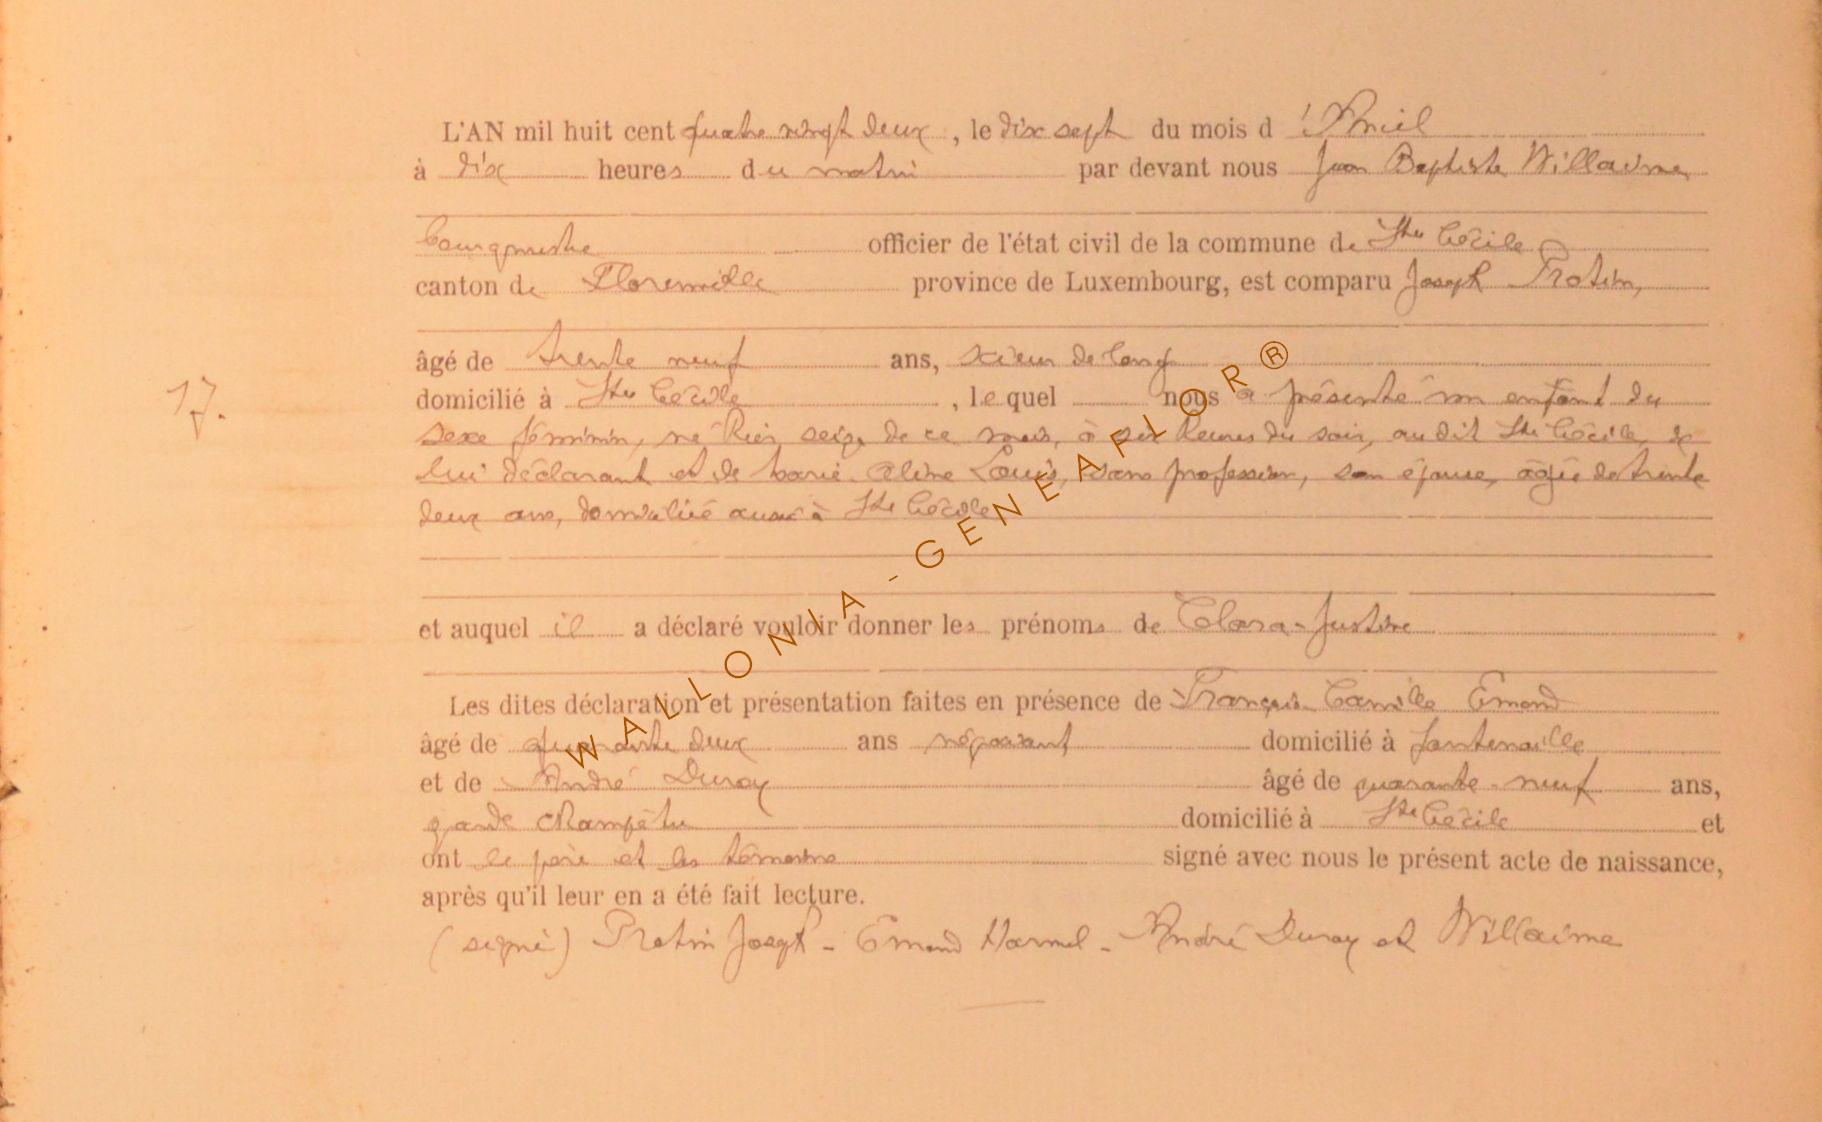 L'AN mil huit cent quatre vingt deux, le dix sept du mois d'Avril
à dix heures du matin par devant nous Jean Baptiste Willaime,
bourgmestre officier de l'état civil de la commune de Ste Cécile
canton de Florenville province de Luxembourg, est comparu Joseph Protin,
âgé de trente neuf ans, scieur de long
17. domicilié à Ste Cécile, lequel nous a présenté un enfant du
sexe féminin, né hier seize de ce mois, à six heures du soir, au dit Ste Cécile, de
lui déclarant et de Marie Aline Louis, sans profession, son épouse, âgée de trente
deux ans, domicilié aussi à Ste Cécile
et auquel il a déclaré vouloir donner les prénoms de Clara-Justine
Les dites déclaration et présentation faites en présence de François Camille Emond
âgé de quarante deux ans négociant domicilié à fontenaille
et de André Duroy âgé de quarante-neuf ans,
garde champêtre domicilié à Ste Cécile et
ont le père et les témoins signé avec nous le présent acte de naissance,
après qu'il leur en a été fait lecture.
(signé) Protin Joseph - Emond - André Duroy et Willaime
WALLONIA-GENEAFLOR®